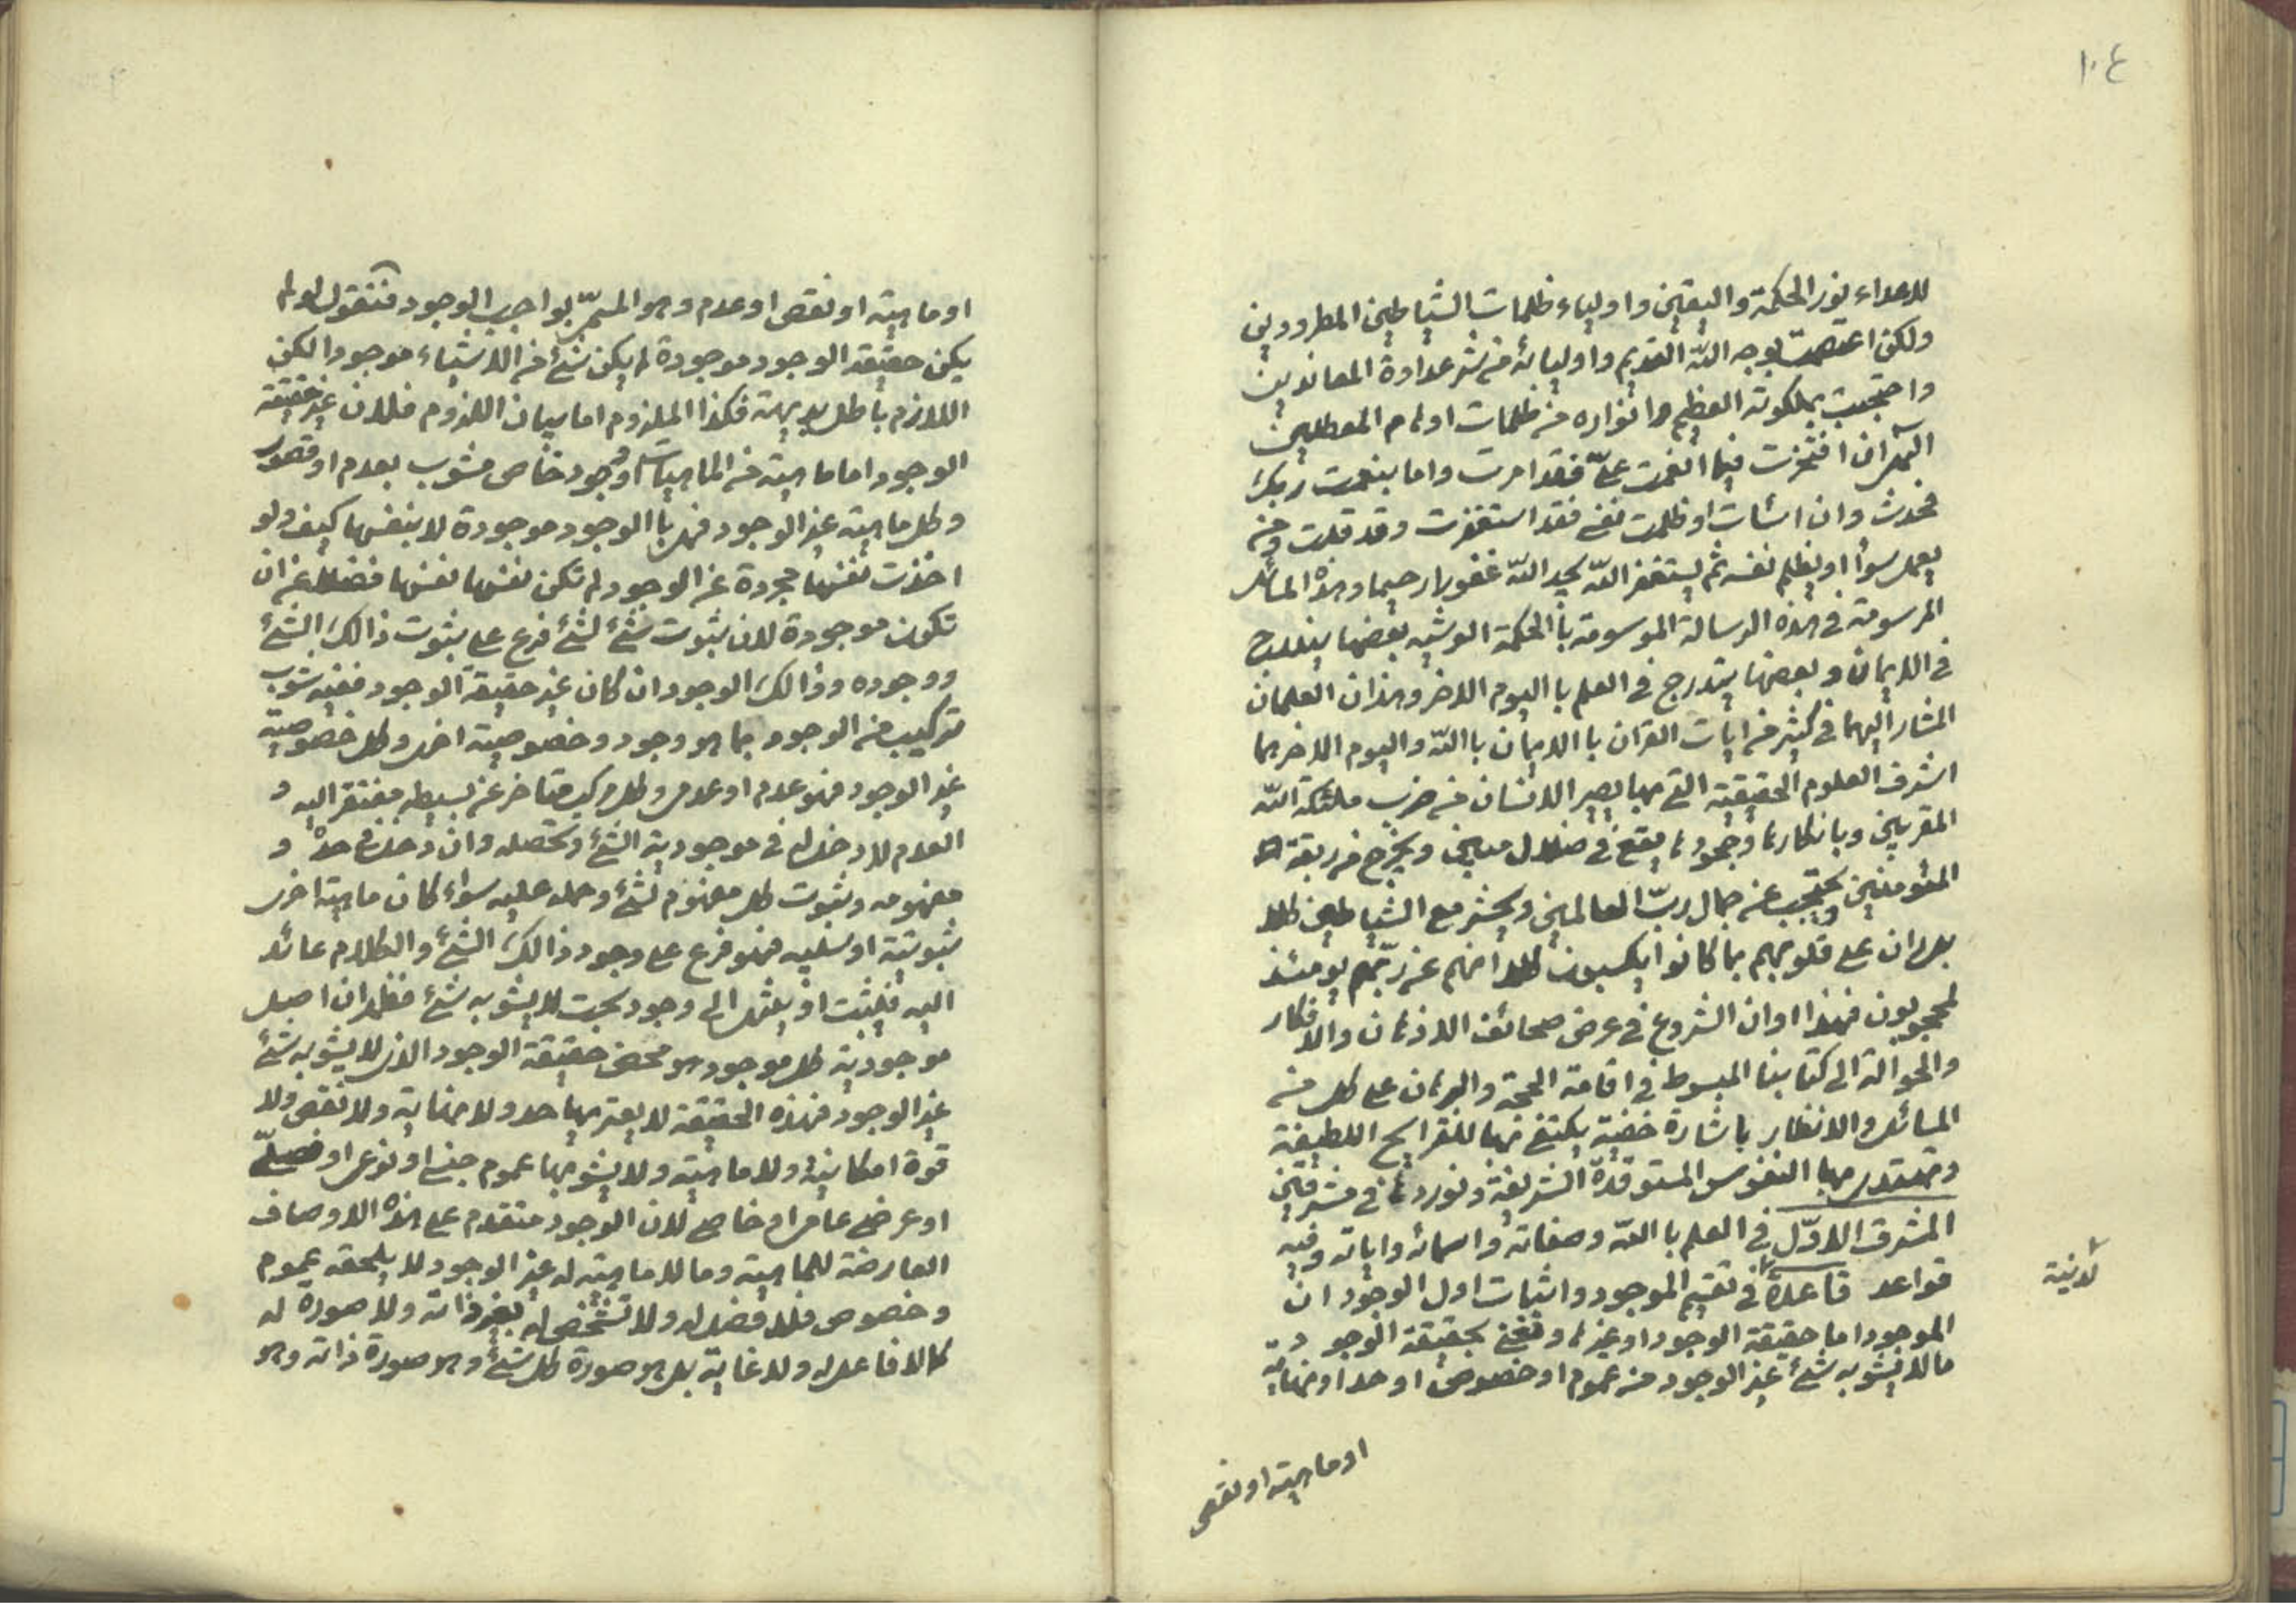 ١٠٤
للاعداء نور الحكمة واليقين واولياء ظلمات الشياطين المطرودين
ولكن اعتصمت بوجه الله القديم واوليائه من شر عداوة المعاندين
واحتجبت بملكوته العظيم وانواره من ظلمات اوهام المعطلين
اللهم ان افتخرت فيما انعمت علىّ فقد امرت واما بنعمت ربك
فحدث وان اسئات او ظلمت نفسى فقد استغفرت وقد قلت ومن
يعمل سوأ او يظلم نفسه ثم يستغفر الله يجد الله غفورا رحيما وهذه المسائل
المرسومة فى هذه الرسالة الموسومة باالحكمة العرشيه بعضها يندرج
فى الايمان وبعضها يندرج فى العلم باا ليوم الاخر وهذان العلمان
المشار اليهما فى كثير من ايات القران باالايمان باالله واليوم الاخر هما
اشرف العلوم الحقيقية التى بها يصير الانسان من حزب ملئكة الله
المقربين وبانكارها وجحودها يقع فى ضلال مبين ويخرج من ربقة
المئومنين ويحتجب عن جمال ربّ العالمين ويحشر مع الشياطين كلا
بل ران على قلوبهم بما كانوا يكسبون كلا انهم عن ربّهم يومئذ
لمحجوبون فهذا اوان الشروع فى عرض صحائف الاذهان والافكار
والحوالة الى كتابنا المبسوط فى اقامة الحجة والبرهان على كل من
المسائل والانظار باشارة خفية يكتفى بها للقرايح اللطيفة
وتهتدى بها النفوس المستوقدة الشريفة ونوردها فى مشرقين
المشرق الاوّل فى العلم باالله وصفاته واسمائه واياته وفيه
قواعد قاعدة فى تقسيم الموجود واثبات اول الوجود ان
لدنية
الموجود اما حقيقة الوجود او غيرها ونعنى بحقيقة الوجود
مالا يشوبه شئ غير الوجود من عموم او خصوص او حد او نهاية
اوماهية او نقص
اوماهية او نقص او عدم وهو المسمىّ بواجب الوجود فنقول لو لم
يكن حقيقة الوجود موجودة لم يكن شئ من الاشياء موجودا لكن
اللازم باطل بديهة فكذا الملزوم اما بيان اللزوم فلان غير حقيقة
الوجود اما ماهية من الماهيات او وجود خاص مشوب بعدم او قصور
وكل ماهية غير الوجود فهى باالوجود موجودة لا بنفسها كيف ولو
اخذت نفسها مجردة عن الوجود لم تكن نفسها نفسها فضلا عن ان
تكون موجودة لان ثبوت شئ لشئ فرع على ثبوت ذالك الشئ
ووجوده وذالك الوجود ان كان غير حقيقة الوجود ففيه شوب
تركيب من الوجود بما هو وجود وخصوصية اخرى وكل خصوصية
غير الوجود فهو عدم او عدمى وكل مركب متاخر عن بسيطه مفتقر اليه و
العدم لا دخل له فى موجودية الشئ وتحصله وان دخل فى حده و
مفهومه وثبوت كل مفهوم لشئ وحمله عليه سواء كان ماهية اخرى
ثبوتية او سلبيه فهو فرع على وجود ذالك الشئ والكلام عائد
اليه فيثبت او ينتهى الى وجود بحت لا يشوبه شئ فظهر ان اصل
موجودية كل موجود هو محض حقيقة الوجود الذى لا يشوبه شئ
غير الوجود فهذه الحقيقة لا يعتريها حد ولا نهاية ولا نقص ولا
قوة امكانية ولا ماهية ولا يشوبها عموم جنسى او نوعى او فصلىّ
او عرضى عام او خاصى لان الوجود متقدم على هذه الاوصاف
العارضة للماهية وما لا ماهية له غير الوجود لا يلحقه عموم
وخصوص فلا فصل له ولا تشخص له بغير ذاته ولا صورة له
كما لا فاعل له ولا غاية بل هو صورة كل شئ وهو صورة ذاته وهو